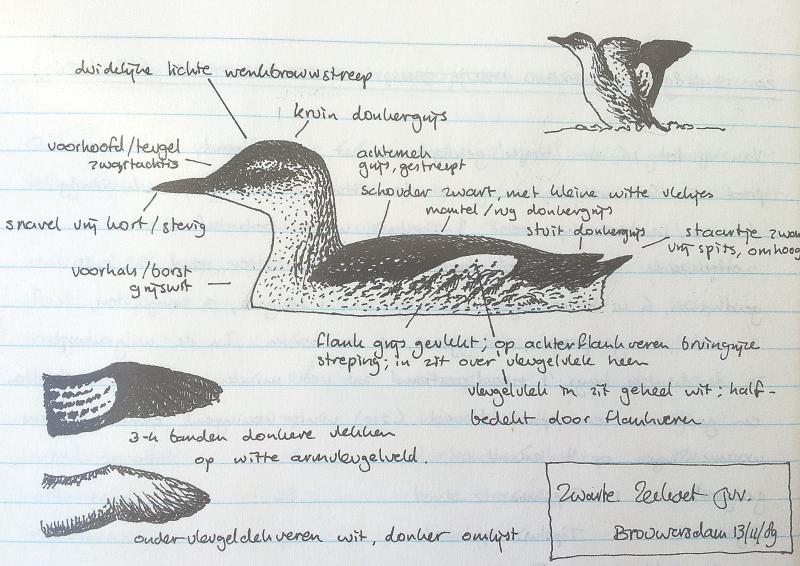 duidelijke lichte wenkbrouwstreep
kruin donkergrijs
voorhoofd/teugel
zwartachtig
achternek
grijs, gestreept
schouder zwart, met kleine witte vlekjes
mantel/rug donkergrijs
stuit donkergrijs
staartje zwart
vrij spits, omhoog
snavel vrij kort/stevig
voorhals/borst
grijswit
flank grijs gevlekt; op achterflankveren bruingrijze
streping; in zit over vleugelvlek heen
vleugelvlek in zit geheel wit; half-
bedekt door flankveren
3-4 banden donkere vlekken
op witte armvleugelveld.
ondervleugeldekveren wit, donker omlijst
Zwarte Zeekoet juv.
Brouwersdam 13/11/89